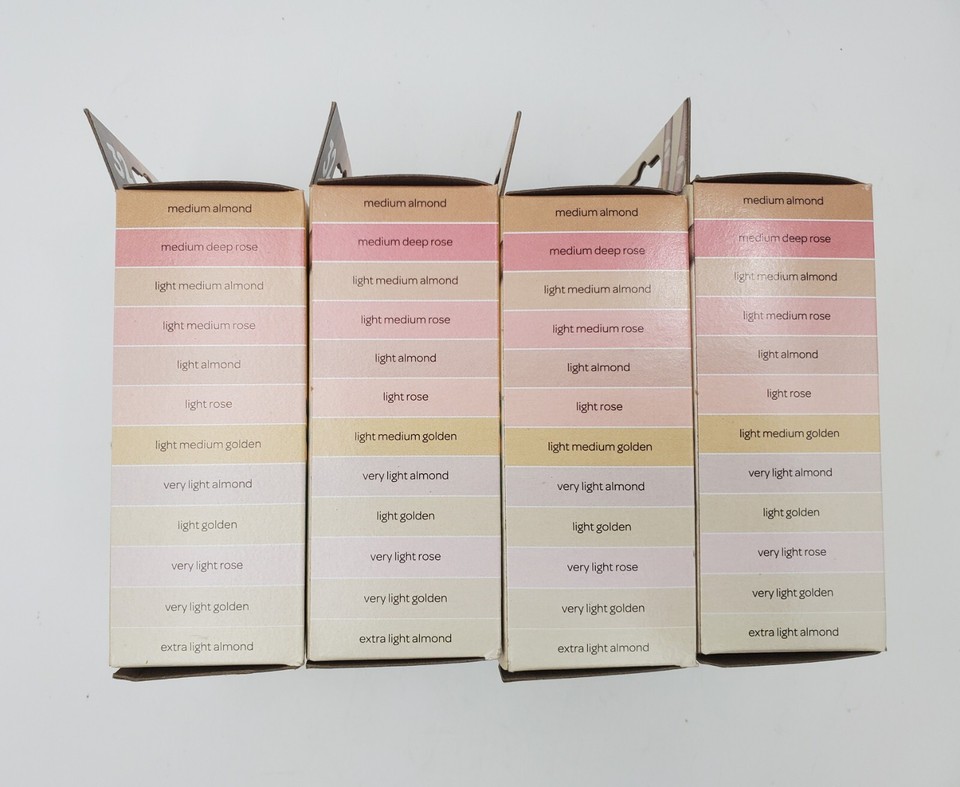 medium almond
medium deep rose
light medium almond
light medium rose
light almond
light rose
light medium golden
very light almond
light golden
very light rose
very light golden
extra light almond
medium almond
medium deep rose
light medium almond
light medium rose
light almond
light rose
light medium golden
very light almond
light golden
very light rose
very light golden
extra light almond
medium almond
medium deep rose
light medium almond
light medium rose
light almond
light rose
light medium golden
very light almond
light golden
very light rose
very light golden
extra light almond
medium almond
medium deep rose
light medium almond
light medium rose
light almond
light rose
light medium golden
very light almond
light golden
very light rose
very light golden
extra light almond